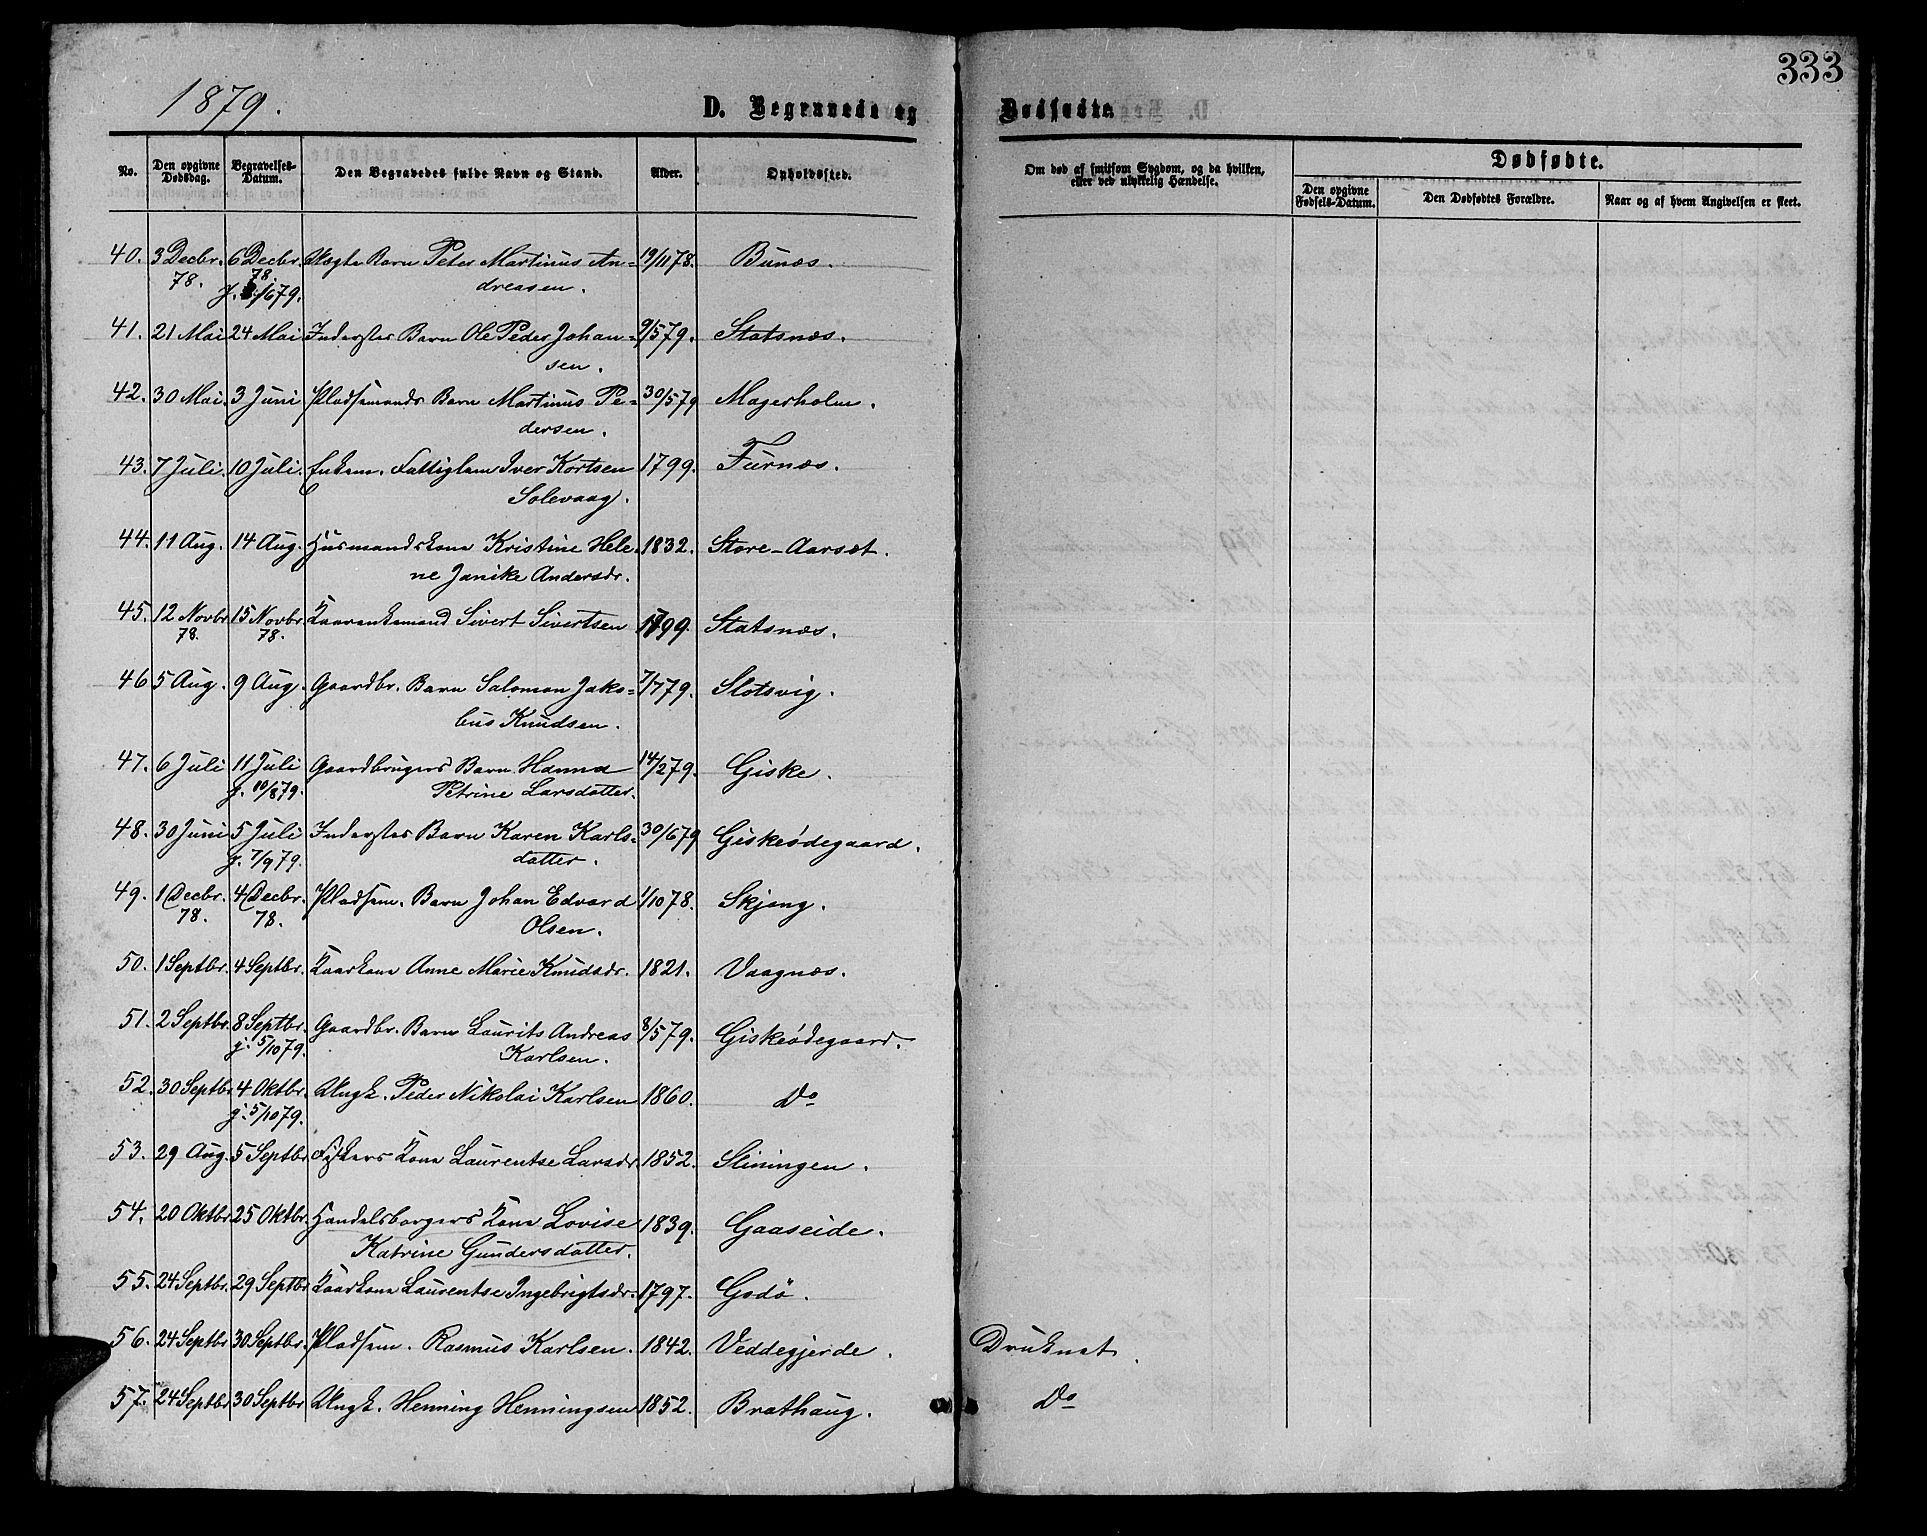 333
1879.
D. Begravede og Dødfødte.
No. Den opgivne Dødsdag. Begravelses-Datum. Den Begravedes fulde Navn og Stand. Alder. Opholdssted. Om død af smitsom Sygdom, og da hvilken, eller ved ulykkelig Hændelse. Dødfødte.
Den opgivne Fødsels-Datum. Den Dødfødtes Forældre. Naar og af hvem Angivelsen er skeet.
40. 3 Decbr. 6 Decbr. Uægte Barn Peter Martinus An- 19/11 78. Bunæs.
78. 78. dreasen.
j. /6 79.
41. 21 Mai 24 Mai Inderstes Barn Ole Peder Johan- 9/5 79. Statsnæs.
sen.
42. 30 Mai. 3 Juni Pladsemands Barn Martinus Pe- 30/5 79 Magerholm.
dersen.
43. 7 Juli. 10 Juli. Enkem. Fattiglem Iver Kortsen 1799. Furnæs.
Solevaag.
44. 11 Aug. 14 Aug. Husmandskone Kristine Hele- 1832. Store-Aarsæt.
ne Janike Andersdr.
45. 12 Novbr 15 Novbr Kaarenkemand Sivert Sivertsen 1799. Statsnæs.
78. 78.
46 5 Aug. 9 Aug. Gaardbr. Barn Salomon Jako- 7/7 79. Slotsvig.
bus Knudsen.
47. 6 Juli 11 Juli Gaardbrugers Barn Hanna 14/2 79. Giske.
j. 10/8 79. Petrine Larsdatter.
48. 30 Juni 5 Juli Inderstes Barn Karen Karls- 30/6 79 Giskeødegaard.
j. 7/9 79. datter.
49. 1 Decbr. 4 Decbr. Pladsem. Barn Johan Edvard 1/10 78. Skjong.
78. 78. Olsen.
50. 1 Septbr. 4 Septbr. Kaarkone Anne Marie Knudsdr. 1821. Vaagnæs.
51. 2 Septbr. 8 Septbr. Gaardbr. Barn Laurits Andreas 8/5 79. Giskeødegaard.
j. 5/10 79. Karlsen.
52. 30 Septbr. 4 Oktbr. Ungk. Peder Nikolai Karlsen 1860. Do
j. 5/10 79.
53. 29 Aug. 5 Septbr Fiskers Kone Laurentse Larsdr. 1852. Sliningen.
54. 20 Oktbr 25 Oktbr. Handelsborgers Kone Lovise 1839. Gaaseide.
Katrine Gundersdatter.
55. 24 Septbr. 29 Septbr Kaarkone Laurentse Ingebrigtsdr. 1797. Godø.
56. 24 Septbr 30 Septbr. Pladsem. Rasmus Karlsen. 1842. Veddegjerde. Druknet.
57. 24 Septbr 30 Septbr Ungk. Henning Henningsen 1852. Brathaug. Do